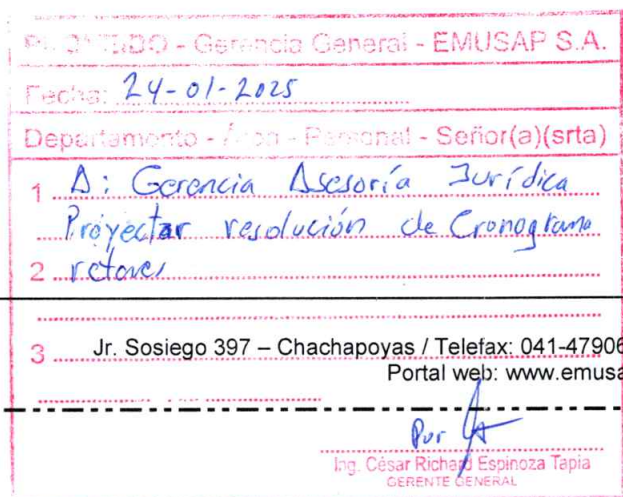 PROVEIDO - Gerencia General - EMUSAP S.A.
Fecha: 24-01-2025
Departamento - Área - Personal - Señor(a)(srta)
1 A: Gerencia Asesoría Jurídica
Proyectar resolución de Cronograma
2
3
Jr. Sosiego 397 – Chachapoyas / Telefax: 041-47906
Portal web: www.emusa
Por
Ing. César Richard Espinoza Tapia
GERENTE GENERAL